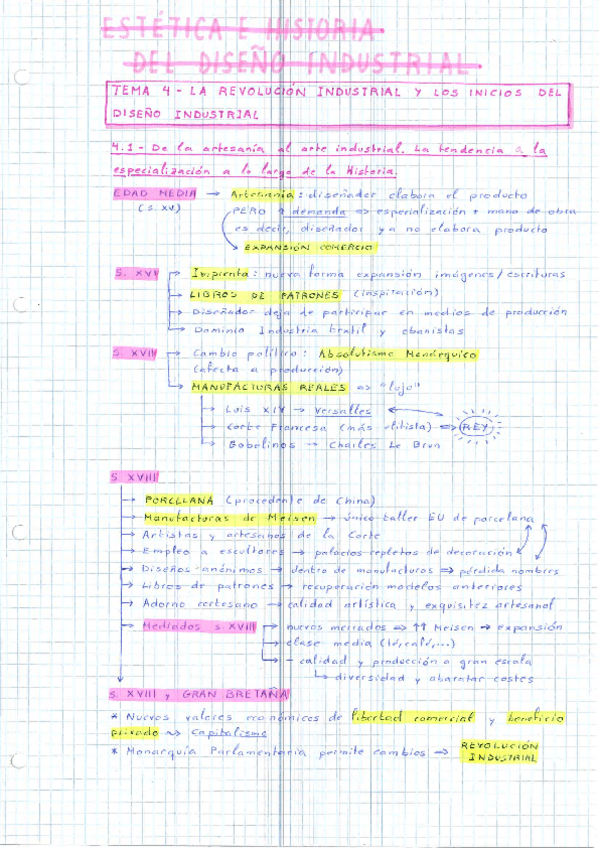 ESTÉTICA E HISTORIA
DEL DISEÑO INDUSTRIAL
TEMA 4 - LA REVOLUCIÓN INDUSTRIAL Y LOS INICIOS DEL
DISEÑO INDUSTRIAL
4.1 - De la artesanía al arte industrial. La tendencia a la
especialización a lo largo de la Historia.
EDAD MEDIA → Artesanía: diseñador elabora el producto
(s. XV) PERO ↑ demanda => especialización + mano de obra
es decir, diseñador ya no elabora producto
EXPANSIÓN COMERCIO
S. XVI → Imprenta: nueva forma expansión imágenes/escrituras
→ LIBROS DE PATRONES (inspiración)
→ Diseñador deja de participar en medios de producción
→ Dominio Industria textil y ebanistas
S. XVII → Cambio político: Absolutismo Monárquico
(afecta a producción)
→ MANUFACTURAS REALES => "lujo"
→ Luis XIV → Versalles
→ Corte Francesa (más elitista) <=> REY
→ Gobelinos → Charles Le Brun
S XVIII
→ PORCELLANA (procedente de China)
→ Manufacturas de Meisen → único taller EU de porcelana
→ Artistas y artesanos de la Corte
→ Empleo a escultores → palacios repletos de decoración
→ Diseños anónimos → dentro de manufacturas => pérdida nombres
→ Libros de patrones → recuperación modelos anteriores
→ Adorno cortesano → calidad artística y exquisitez artesanal
→ Mediados s XVIII → nuevos mercados => ↑↑ Meisen → expansión
→ clase media (té, café, ...)
→ - calidad y producción a gran escala
→ diversidad y abaratar costes
S. XVIII y GRAN BRETAÑA
* Nuevos valores económicos de libertad comercial y beneficio
privado ~> Capitalismo
* Monarquía Parlamentaria permite cambios => REVOLUCIÓN
INDUSTRIAL